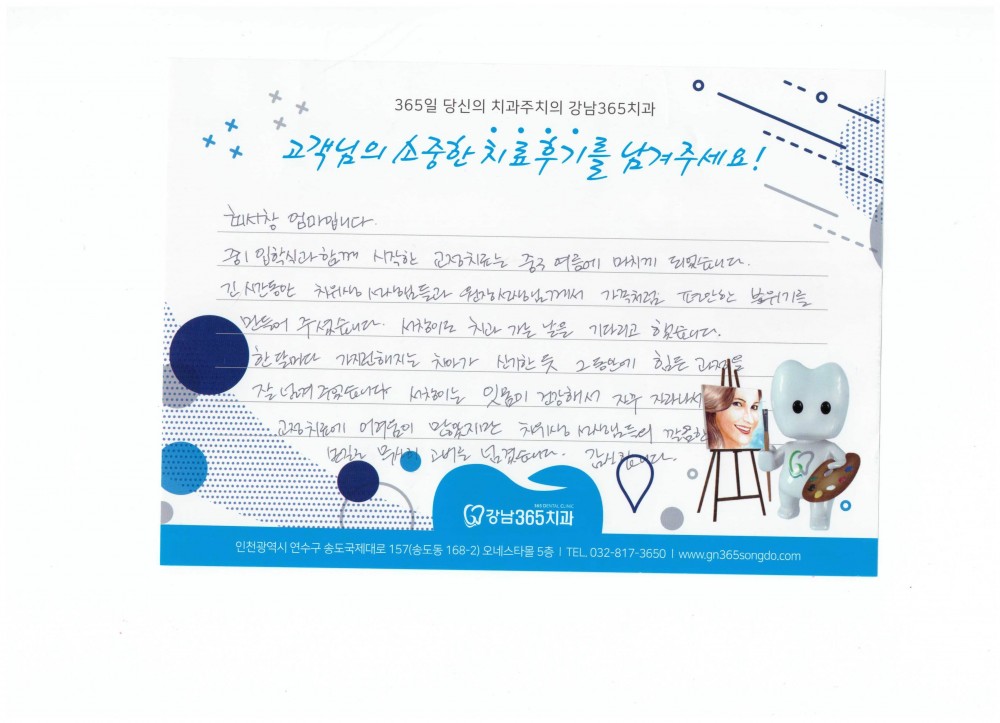 365일 당신의 치과주치의 강남365치과
고객님의 소중한 치료후기를 남겨주세요!
엄마입니다.
중1 입학식과 함께 시작한 교정치료는 중3 여름에 마치게 되었습니다.
긴 시간동안 치위생 선생님들과 원장선생님께서 가족처럼 편안한 분위기를
만들어 주셨습니다. 서창이도 치과 가는 날을 기다리고 했었습니다.
한달마다 가지런해지는 치아가 신기한 듯 그동안에 힘든 과정을
잘 넘겨 주었습니다 서창이는 잇몸이 건강해서 자꾸 자라나서
교정치료에 어려움이 많았지만 치위생 선생님들의 꼼꼼한
무사히 고비를 넘겼습니다. 감사합니다.
365 DENTAL CLINIC
강남365치과
인천광역시 연수구 송도국제대로 157(송도동 168-2) 오네스타몰 5층 | TEL. 032-817-3650 | www.gn365songdo.com